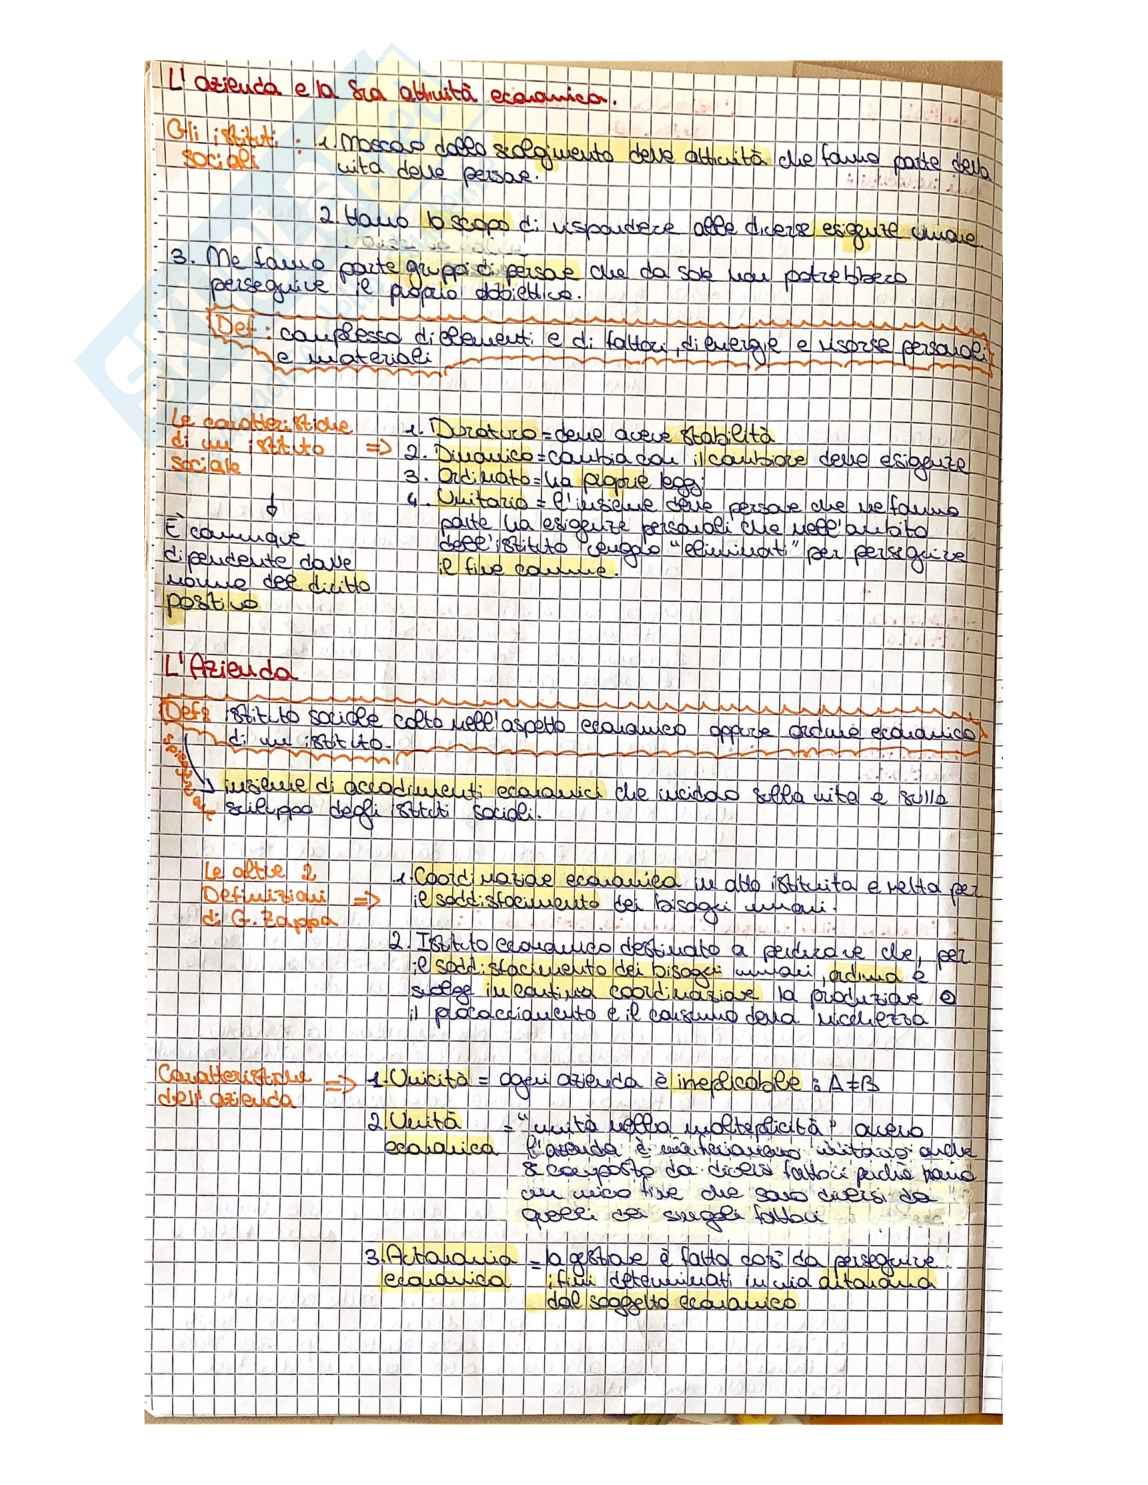 L'azienda e la sua attività economica.
Gli istituti sociali : 1. Nascono dallo svolgimento delle attività che fanno parte della
vita delle persone.
2. Hanno lo scopo di rispondere alle diverse esigenze umane.
3. Ne fanno parte gruppi di persone che da sole non potrebbero
perseguire il proprio obbiettivo.
Def: complesso di elementi e di fattori, di energie e risorse personali
e materiali
Le caratteristiche
di un istituto =>
sociale
1. Duraturo = deve avere stabilità
2. Dinamico = cambia con il cambiare delle esigenze
3. Ordinato = ha proprie leggi
4. Unitario = l'insieme delle persone che ne fanno
parte ha esigenze personali che nell'ambito
dell'istituto vengono "eliminati" per perseguire
il fine comune.
È comunque
dipendente dalle
norme del diritto
positivo
L'Azienda
Def: istituto sociale colto nell'aspetto economico oppure ordine economico
di un istituto.
spiegazione
insieme di accadimenti economici che incidono sulla vita e sullo
sviluppo degli istituti sociali.
Le altre 2
Definizioni =>
di G. Zappa
1. Coordinazione economica in atto istituita e retta per
il soddisfacimento dei bisogni umani.
2. Istituto economico destinato a perdurare che, per
il soddisfacimento dei bisogni umani, ordina e
svolge in continua coordinazione la produzione o
il procacciamento e il consumo della ricchezza
Caratteristiche =>
dell'azienda
1. Unicità = ogni azienda è ineplicabile : A≠B
2. Unità = "unità nella molteplicità" ovvero
economica l'azienda è unitario anche
se composto da diversi fattori perchè hanno
un unico fine che sono diversi da
quelli dei singoli fattori
3. Autonomia = la gestione è fatta così da perseguire
economica i fini determinati in via autonoma
dal soggetto economico